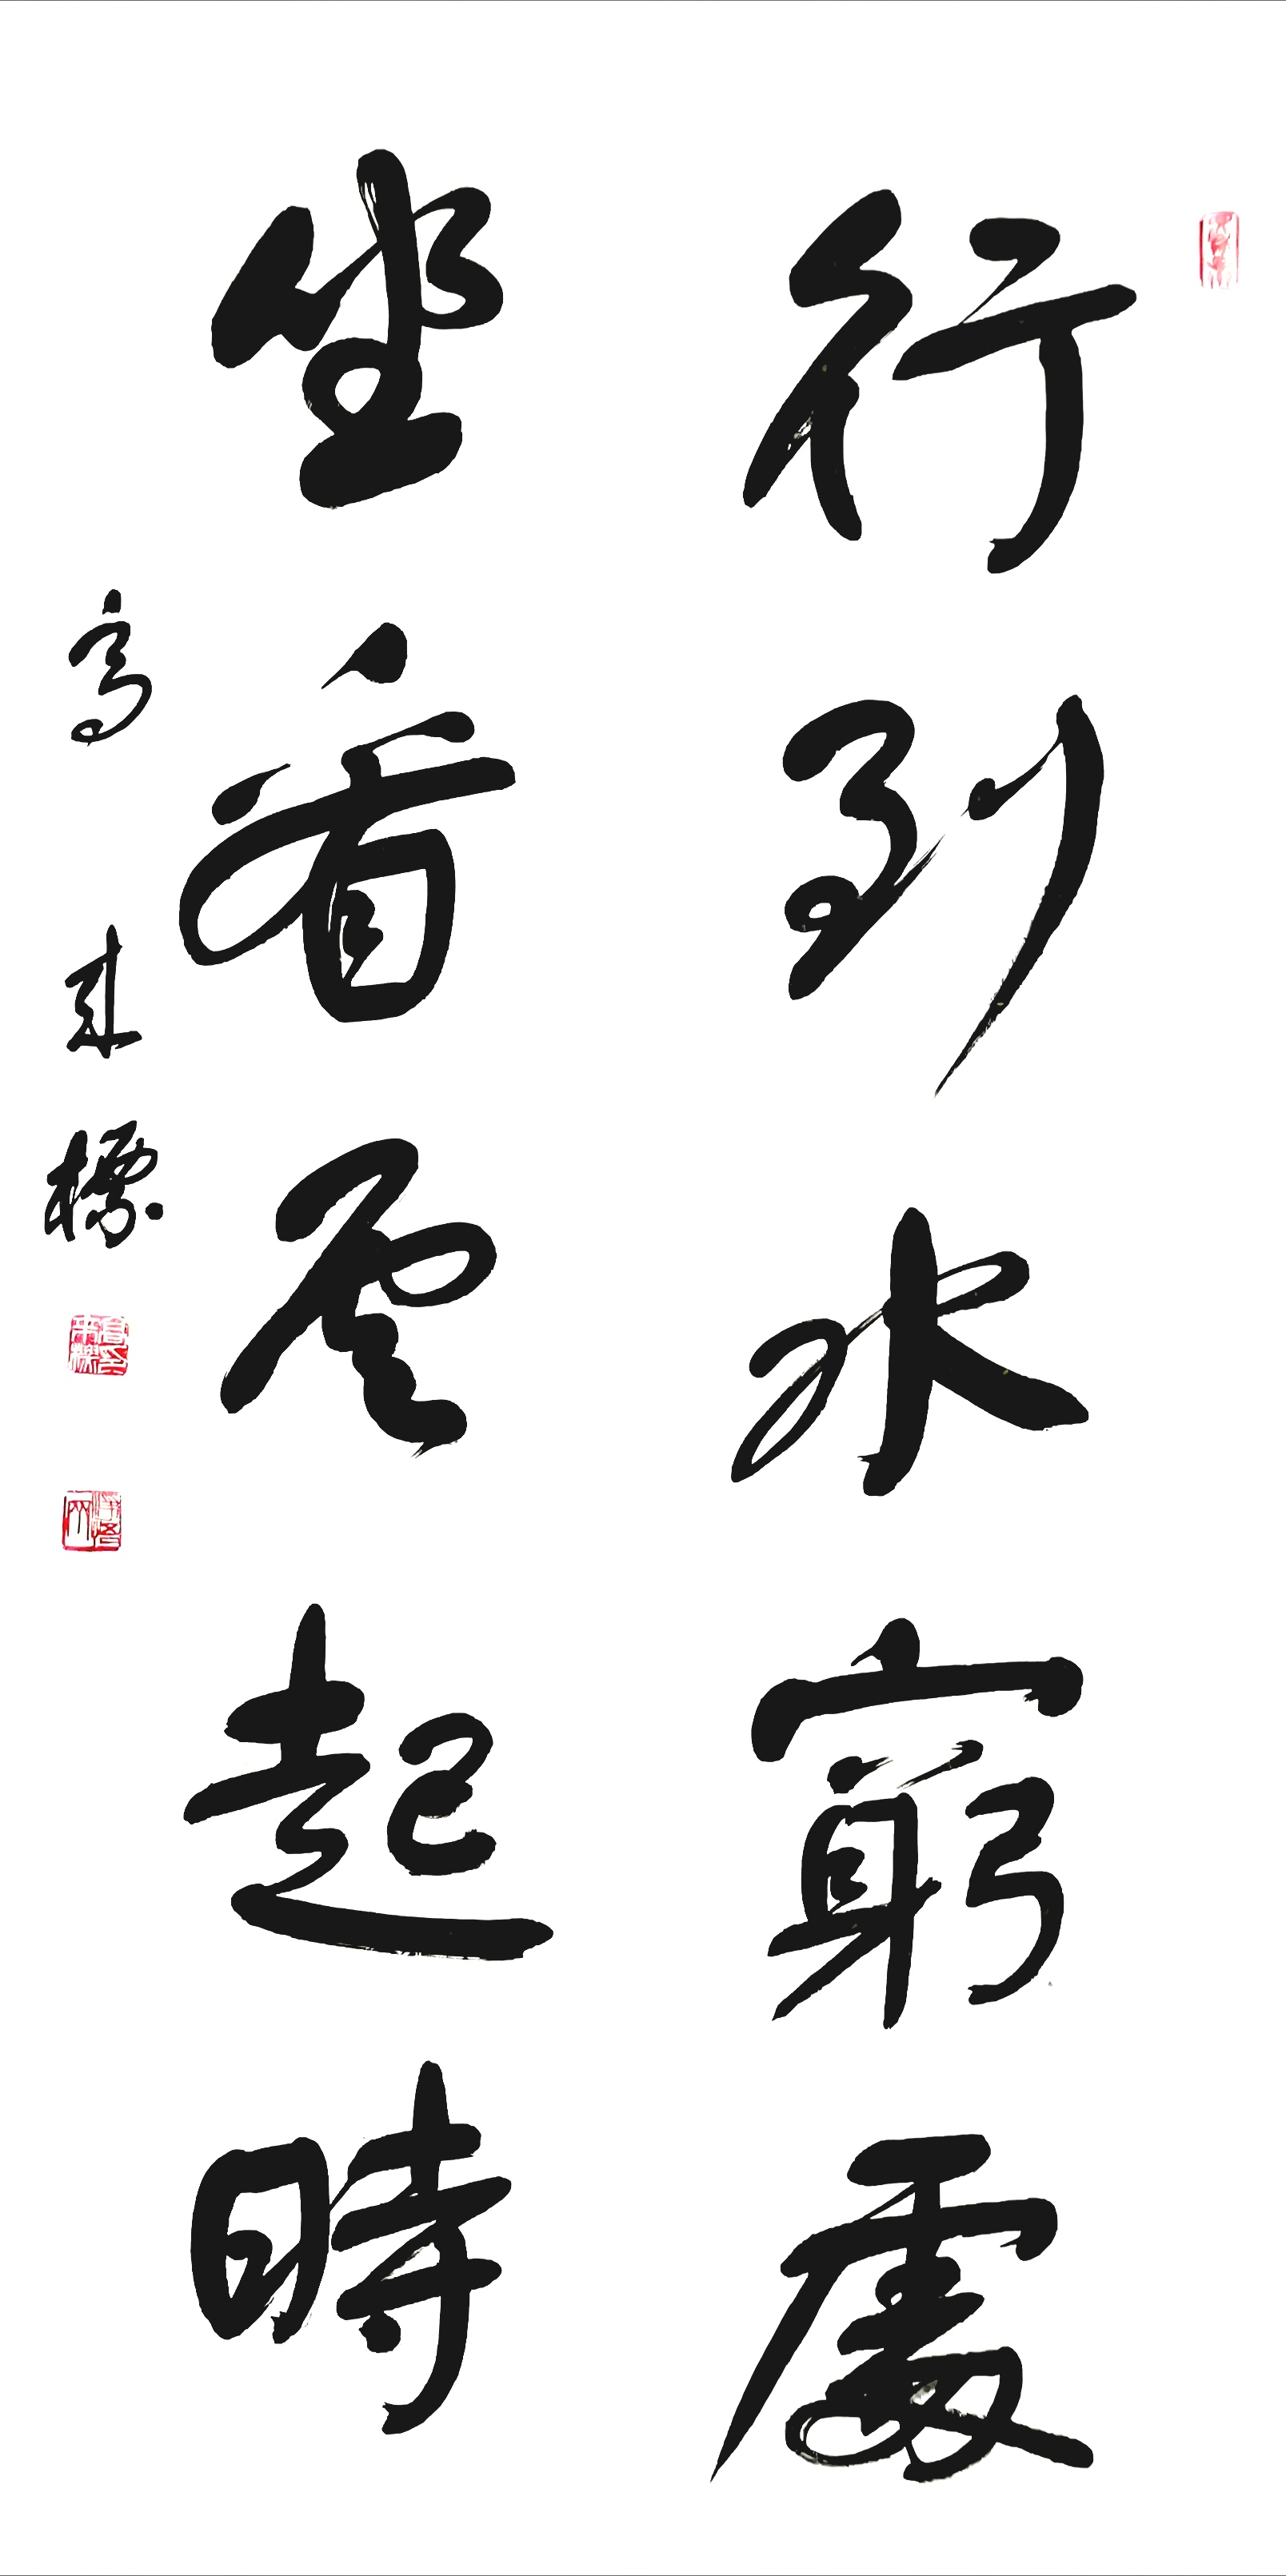 行到水窮處
坐看雲起時
高来標